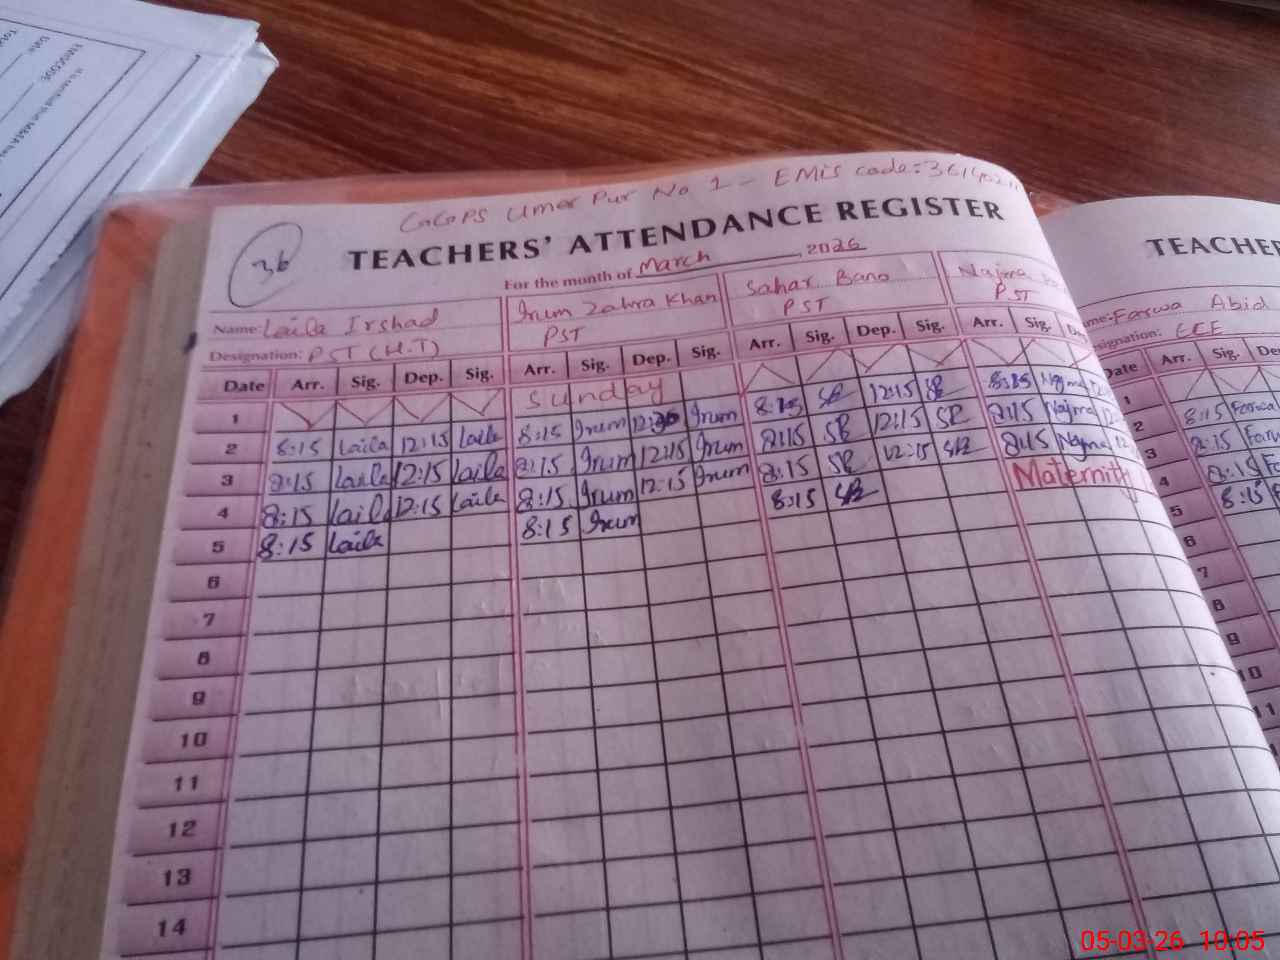 Total
Date
EMISCODE
It is certified that M&EA has
36
GGPS Umer Pur No 1 - EMIS code:
TEACHERS' ATTENDANCE REGISTER
For the month of March, 2026
Name: Laila Irshad Irum Zahra Khan Sahar Bano Najma
Designation: PST (H.T) PST PST PST
Date Arr. Sig. Dep. Sig. Arr. Sig. Dep. Sig. Arr. Sig. Dep. Sig. Arr. Sig.
1 Sunday
2 8:15 Laila 12:15 Laila 8:15 Irum Irum 8:15 SB 12:15 SB 8:15 Najma
3 8:15 Laila 12:15 Laila 8:15 Irum 12:15 Irum 8:15 SB 12:15 SB 8:15 Najma
4 8:15 Laila 12:15 Laila 8:15 Irum 12:15 Irum 8:15 SB 12:15 SB 8:15 Najma
5 8:15 Laila 8:15 Irum 8:15 SB Maternity
6
7
8
9
10
11
12
13
14
TEACHE
me: Farwa Abid
signation: ECE
Date Arr. Sig. De
1
2 8:15 Farwa
3 8:15
4 8:15
5 8:15
6
7
8
9
10
11
05-03-26 10:05